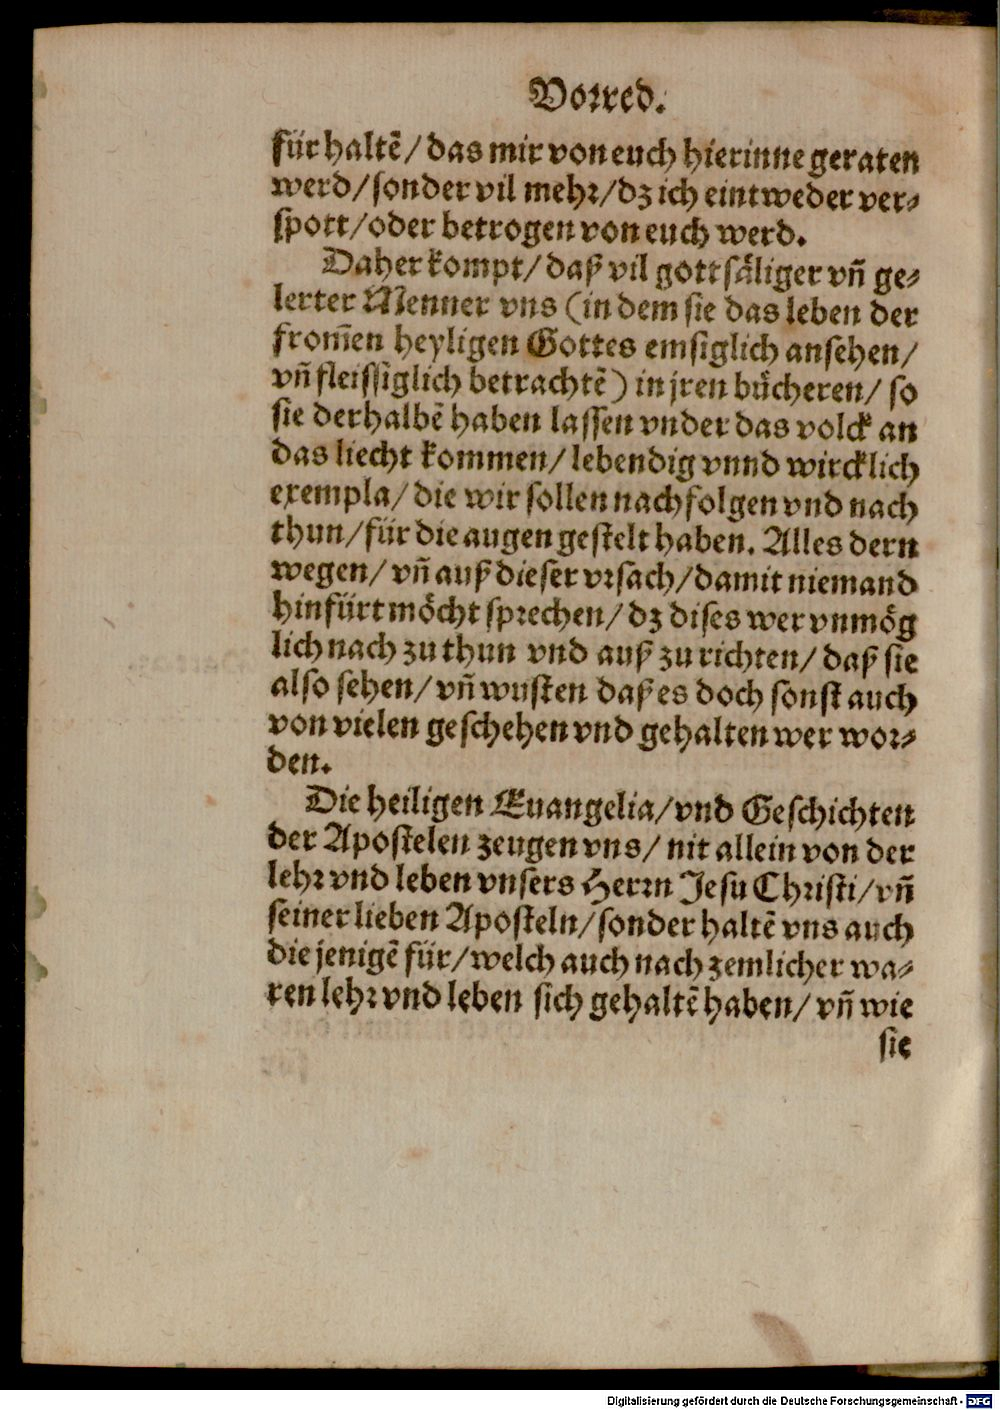 Vorred.
für haltẽ/das mir von euch hierinne geraten
werd/sonder vil mehr/dz ich eintweder ver⸗
spott/oder betrogen von euch werd.
Daher kompt/daß vil gottsäliger vñ ge⸗
lerter Menner vns (in dem sie das leben der
from̃en heyligen Gottes emsiglich ansehen/
vñ fleissiglich betrachtẽ) in jren bücheren/ so
sie derhalbẽ haben lassen vnder das volck an
das liecht kommen/lebendig vnnd wircklich
exempla/die wir sollen nachfolgen vnd nach
thun/für die augen gestelt haben. Alles dern
wegen/vñ auß dieser vrsach/damit niemand
hinfürt möcht sprechen/dz dises wer vnmög
lich nach zu thun vnd auß zu richten/daß sie
also sehen/vñ wusten daß es doch sonst auch
von vielen geschehen vnd gehalten wer wor⸗
den.
Die heiligen Euangelia/vnd Geschichten
der Apostelen zeugen vns/nit allein von der
lehr vnd leben vnsers Herrn Jesu Christi/vñ
seiner lieben Aposteln/sonder haltẽ vns auch
die jenigẽ für/welch auch nach zemlicher wa⸗
ren lehr vnd leben sich gehaltẽ haben/vñ wie
sie
Digitalisierung gefördert durch die Deutsche Forschungsgemeinschaft - DFG